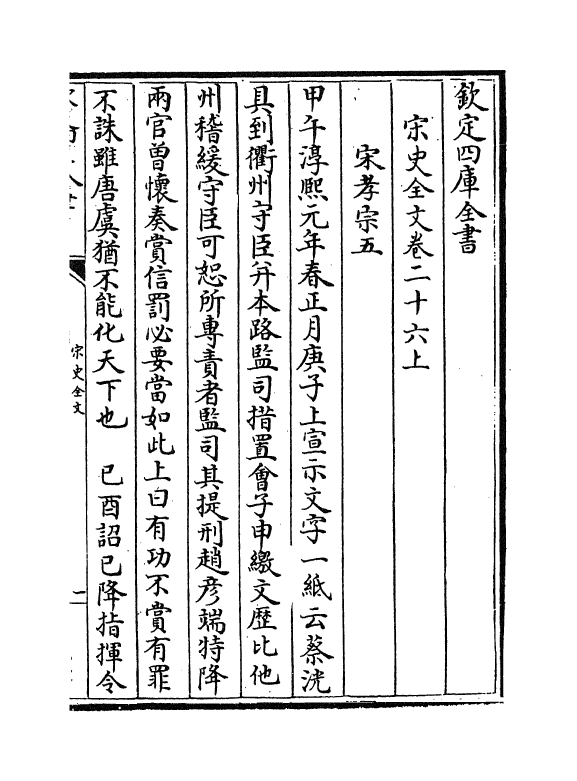 欽定四庫全書
宋史全文卷二十六上
宋孝宗五
甲午淳熙元年春正月庚子上宣示文字一紙云蔡洸
具到衢州守臣幷本路監司措置會子申繳文歷比他
州稽緩守臣可恕所專責者監司其提刑趙彥端特降
兩官曾懷奏賞信罰必要當如此上曰有功不賞有罪
不誅雖唐虞猶不能化天下也　已酉詔已降指揮令
宋史全文